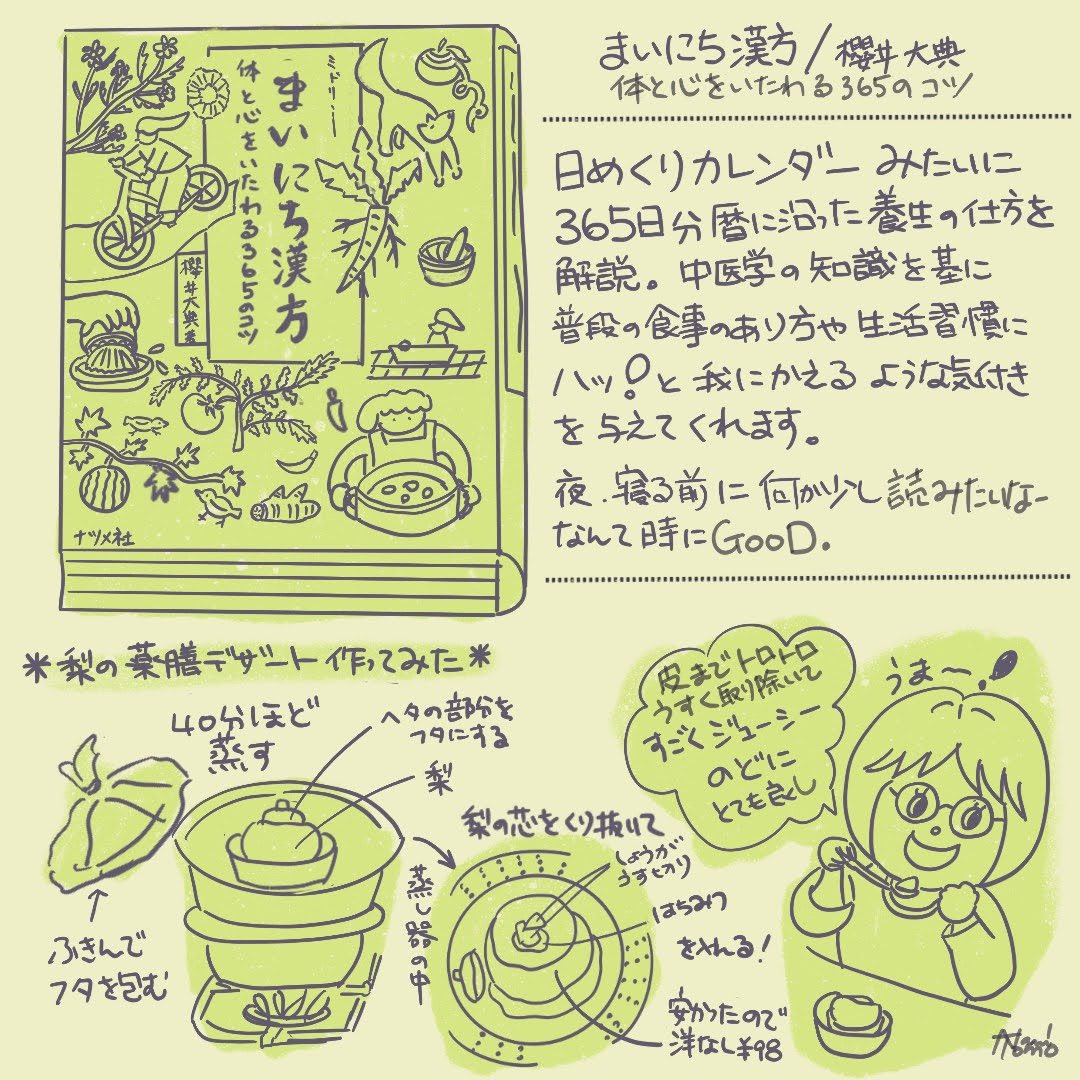 まいにち漢方/櫻井大典
体と心をいたわる365のコツ
日めくりカレンダーみたいに
365日分暦に沿った養生の仕方を
解説。中医学の知識を基に
普段の食事のあり方や生活習慣に
ハッ!と我にかえるような気付き
を与えてくれます。
夜、寝る前に何か少し読みたいなー
なんて時にGooD.
ミドリー
まいにち漢方
体と心をいたわる365のコツ
櫻井大典著
ナツメ社
*梨の薬膳デザート作ってみた*
40分ほど
蒸す
ヘタの部分を
フタにする
梨
ふきんで
フタを包む
蒸し器の中
梨の芯をくり抜いて
しょうが
うすぎり
はちみつ
を入れる!
安かったので
洋なし¥98
皮までトロトロ
うすく取り除いて
すごくジューシー
のどに
とても良くし
うま〜!